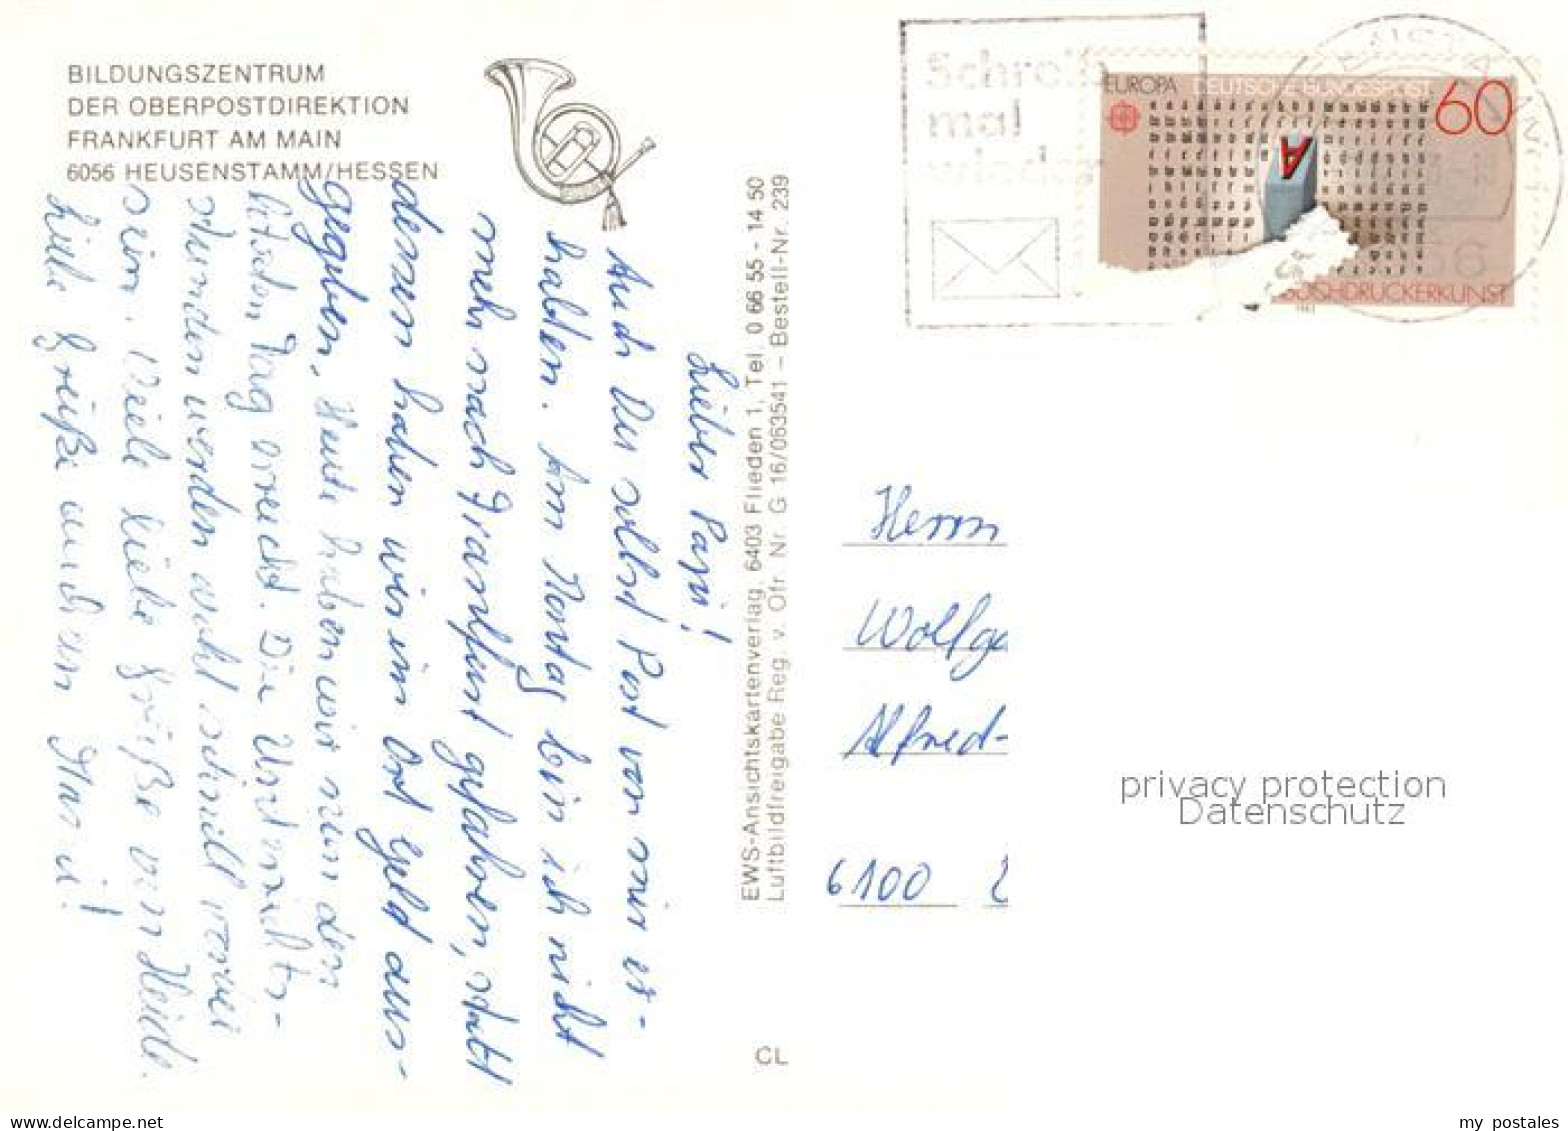 BILDUNGSZENTRUM
DER OBERPOSTDIREKTION
FRANKFURT AM MAIN
6056 HEUSENSTAMM/HESSEN
Lieber Papi!
Auch Du sollst Post von mir er-
halten. Am Montag bin ich nicht
mehr nach Frankfurt gefahren, statt
dessen haben wir im Ort Geld aus-
gegeben. Heute haben wir nun den
letzten Tag erreicht. Die Unterrichts-
stunden werden wohl schnell vorbei
sein. Viele liebe Grüße von Heidi.
Liebe Grüße auch an Mausi!
EWS-Ansichtskartenverlag, 6403 Flieden 1, Tel. 0 66 55 - 14 50
Luftbildfreigabe Reg. v. Ofr. Nr. G 16/063541 – Bestell-Nr. 239
CL
Schreib
mal
wieder
EUROPA DEUTSCHE BUNDESPOST 60
A
BUCHDRUCKERKUNST
Herrn
Wolfga
Alfred-
6100
privacy protection
Datenschutz
my postales